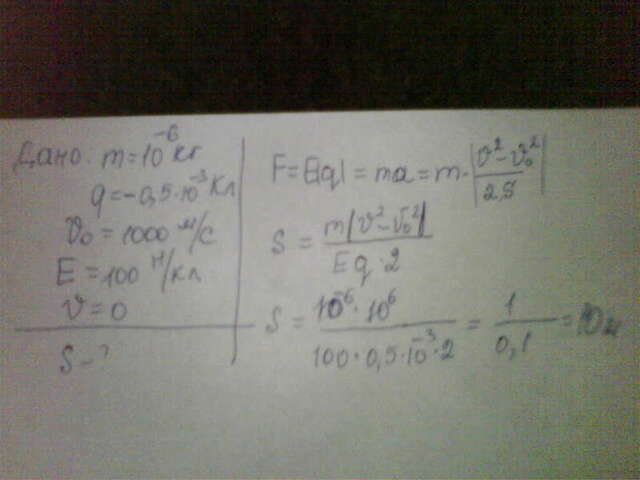 Дано: m=10⁻⁶ кг
q=-0,5·10⁻³ Кл
V₀=1000 м/с
E=100 Н/Кл
V=0
S-?
F=E|q|=ma=m·|V²-V₀²/2S|
S=m|V²-V₀²|/Eq·2
S=10⁻⁶·10⁶/100·0,5·10⁻³·2=1/0,1=10м